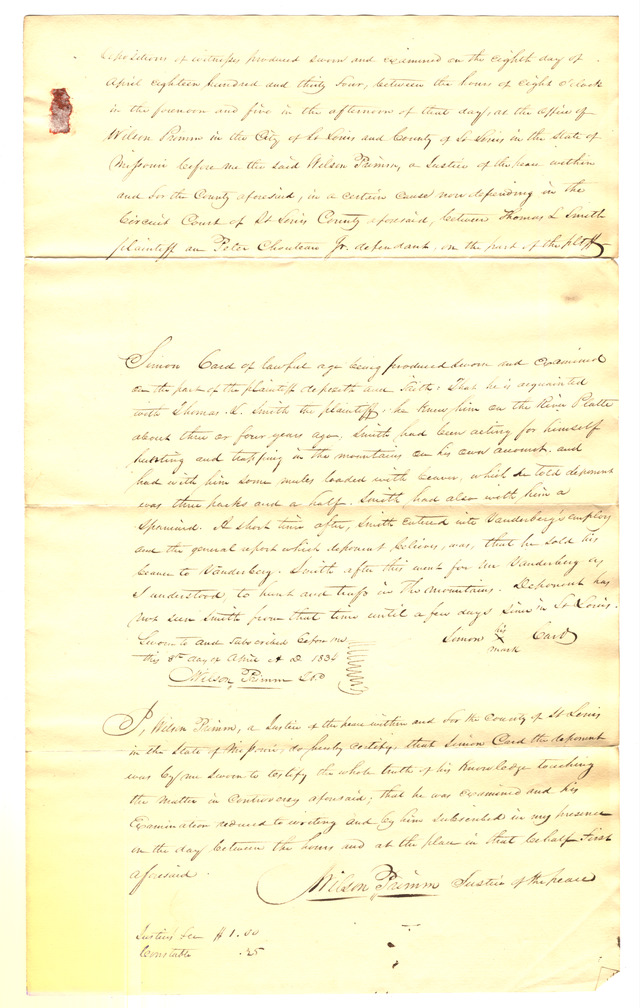 Depositions of witnesses produced sworn and examined on the eighth day of
April eighteen hundred and thirty four, between the hours of eight o'clock
in the forenoon and five in the afternoon of that day, at the office of
Wilson Primm in the City of St Louis and County of St Louis in the State of
Missouri before me the said Wilson Primm, a Justice of the peace within
and for the County aforesaid, in a certain cause now depending in the
Circuit Court of St Louis County aforesaid, between Thomas L Smith
plaintiff an Peter Chouteau Jr. defendant. on the part of the pltff
Simon Card of lawful age being produced sworn and examined
on the part of the plaintiff deposeth and saith: That he is acquainted
with Thomas L. Smith the plaintiff: he knew him on the River Platte
about three or four years ago, Smith had been acting for himself
hunting and trapping in the mountains on his own account. and
had with him some mules loaded with beaver, which he told deponent
was three packs and a half. Smith had also with him a
Spaniard. A short time after, Smith entered into Vanderberg's employ
and the general report which deponent believes, was, that he sold his
beaver to Vanderberg. Smith after this went for Vanderberg as
I understood, to hunt and trap in the mountains. Deponent has
not seen Smith from that time until a few days since in St Louis.
Sworn to and subscribed before me
this 8th day of April A D 1834
Wilson Primm J.P.
Simon his X mark Card
I, Wilson Primm, a Justice of the peace within and for the County of St Louis
in the State of Missouri, do hereby certify, that Simon Card the deponent
was by me sworn to testify the whole truth of his knowledge touching
the matter in controversy aforesaid; that he was examined and his
Examination reduced to writing and by him subscribed in my presence
on the day between the hours and at the place in that behalf first
aforesaid.
Wilson Primm Justice of the peace
Justice's fee $1.00
Constable .25